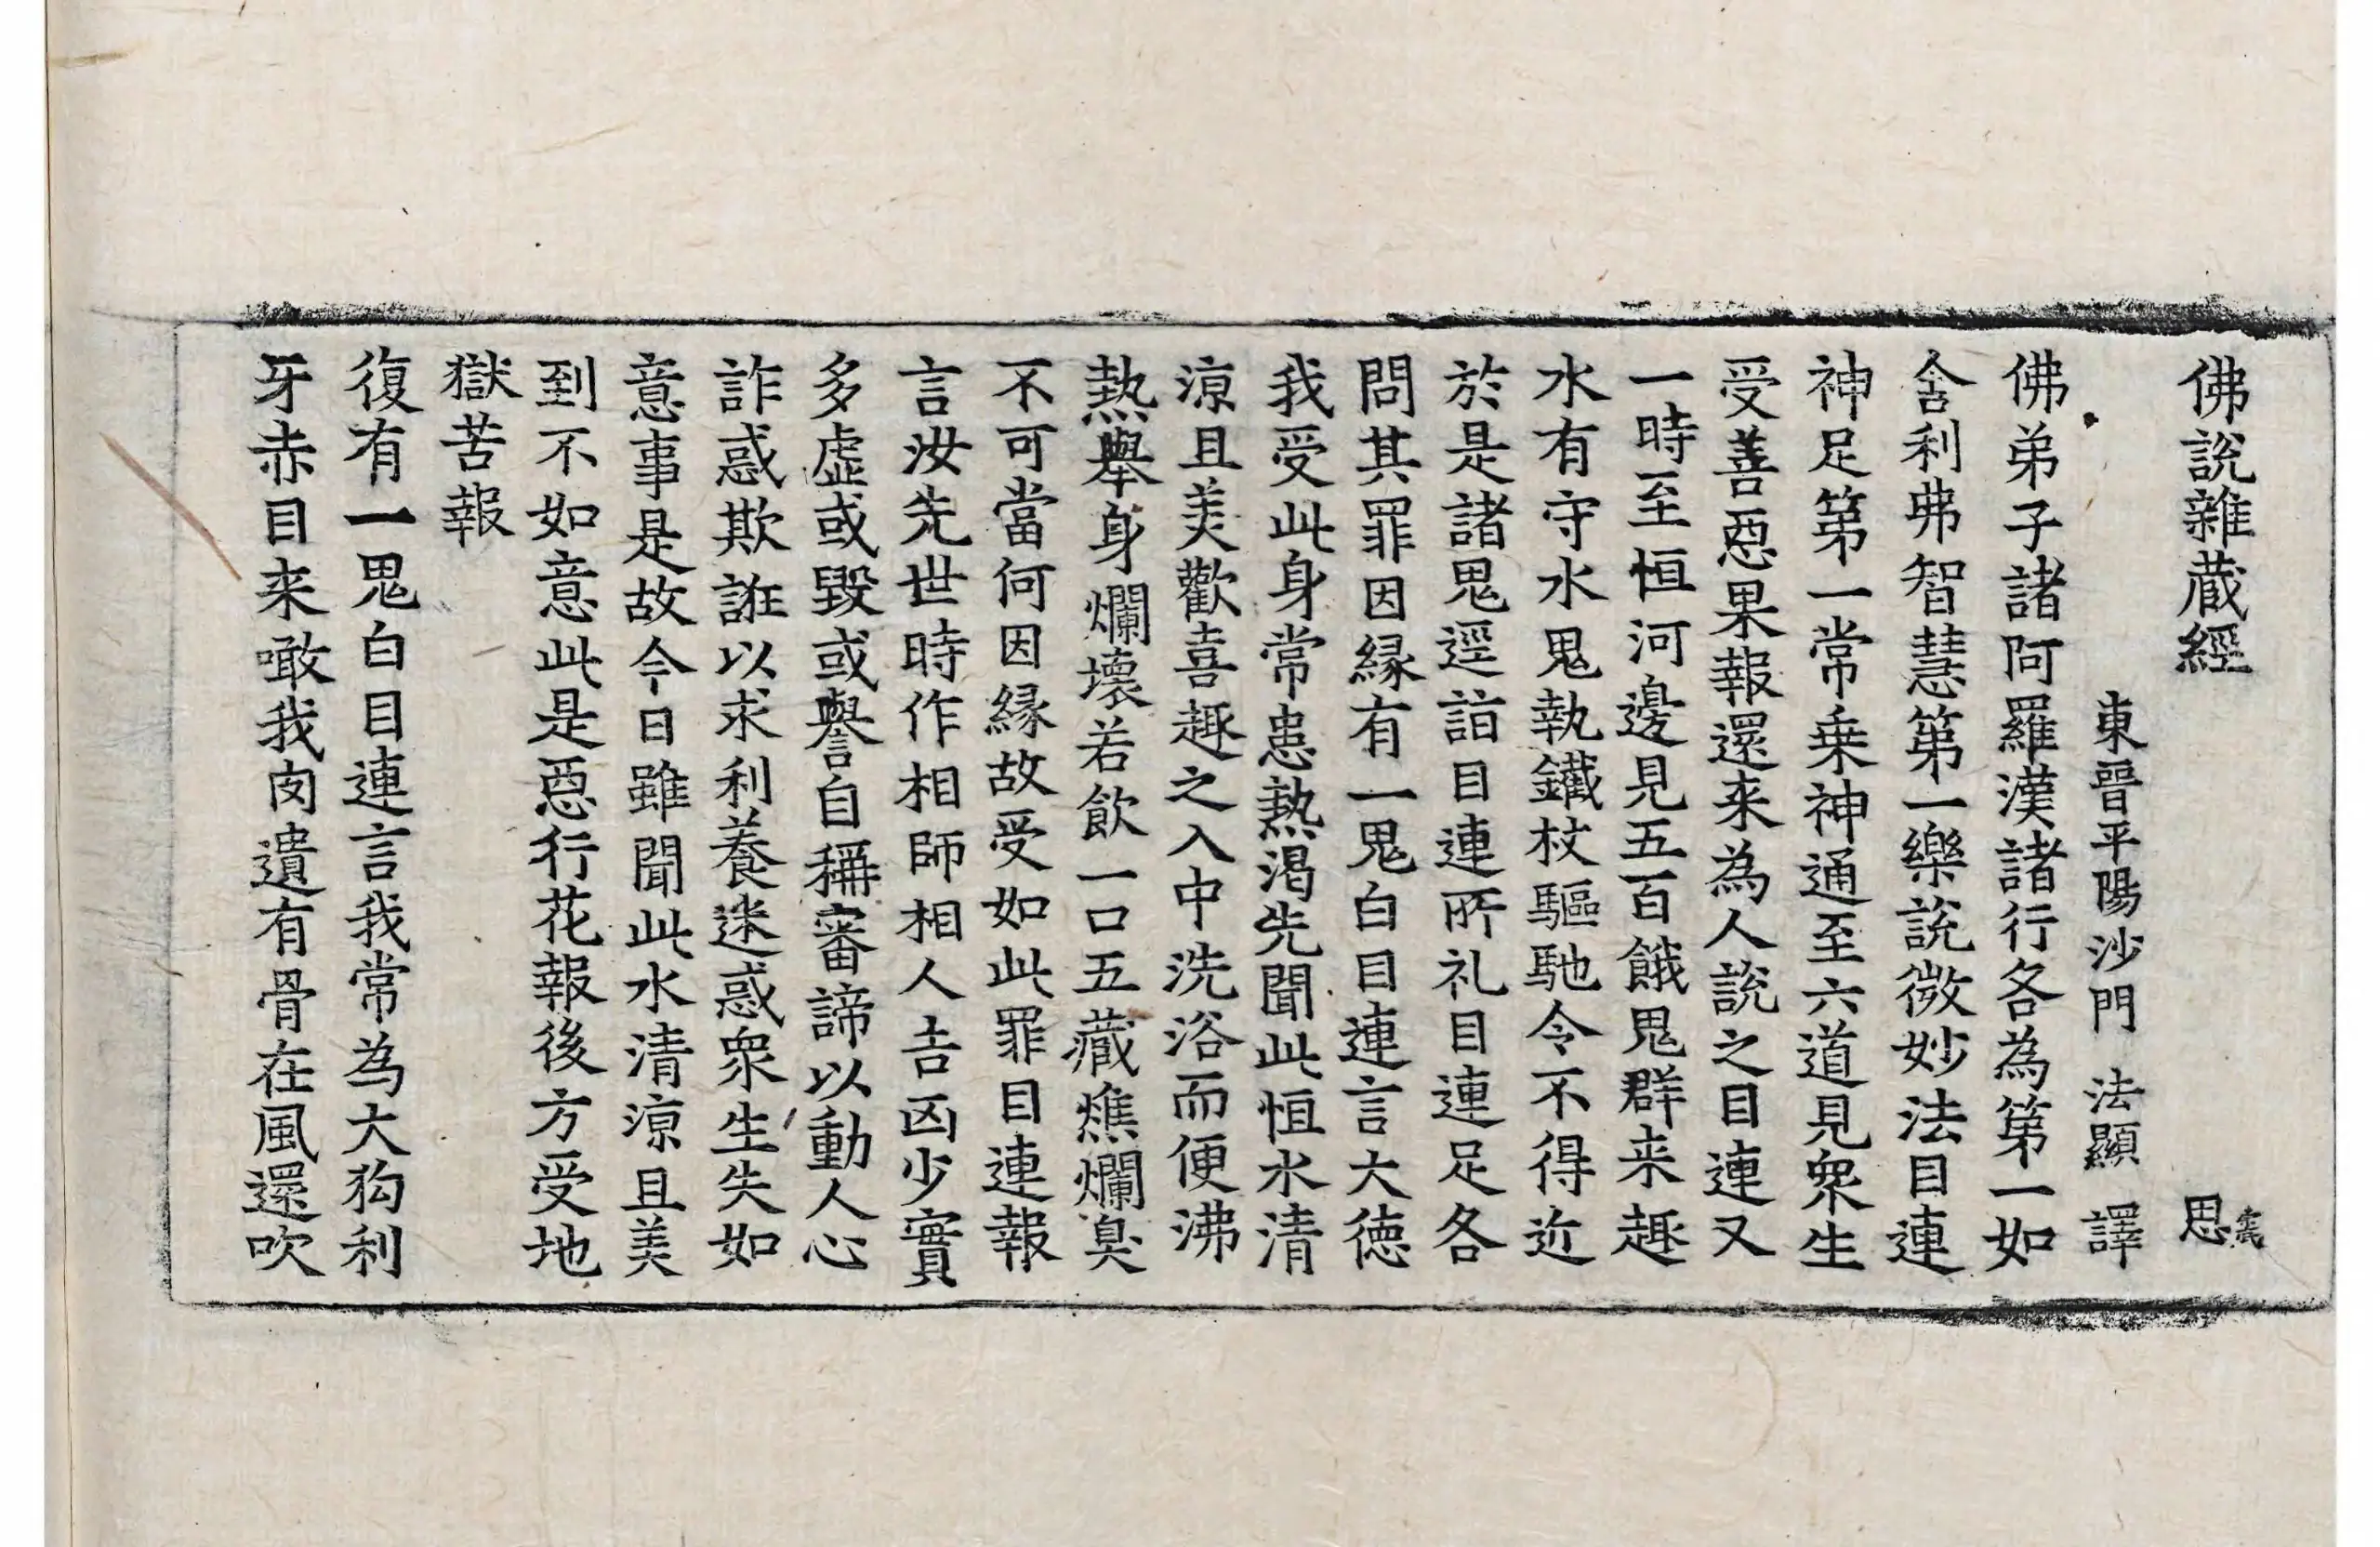 佛說雜藏經
思
東晉平陽沙門 法顯 譯
佛弟子諸阿羅漢諸行各為第一如
舍利弗智慧第一樂說微妙法目連
神足第一常乗神通至六道見衆生
受善惡果報還来為人說之目連又
一時至恒河邊見五百餓鬼群来趣
水有守水鬼執鐵杖驅馳令不得近
於是諸鬼逕詣目連所礼目連足各
問其罪因縁有一鬼白目連言大徳
我受此身常患熱渴先聞此恒水清
涼且美歡喜趣之入中洗浴而便沸
熱舉身爛壞若飲一口五藏燋爛臭
不可當何因縁故受如此罪目連報
言汝先世時作相師相人吉凶少實
多虚或毀或譽自稱審諦以動人心
詐惑欺誑以求利養迷惑衆生失如
意事是故今日雖聞此水清涼且美
到不如意此是惡行花報後方受地
獄苦報
復有一鬼白目連言我常為大狗利
牙赤目来噉我肉遺有骨在風還吹